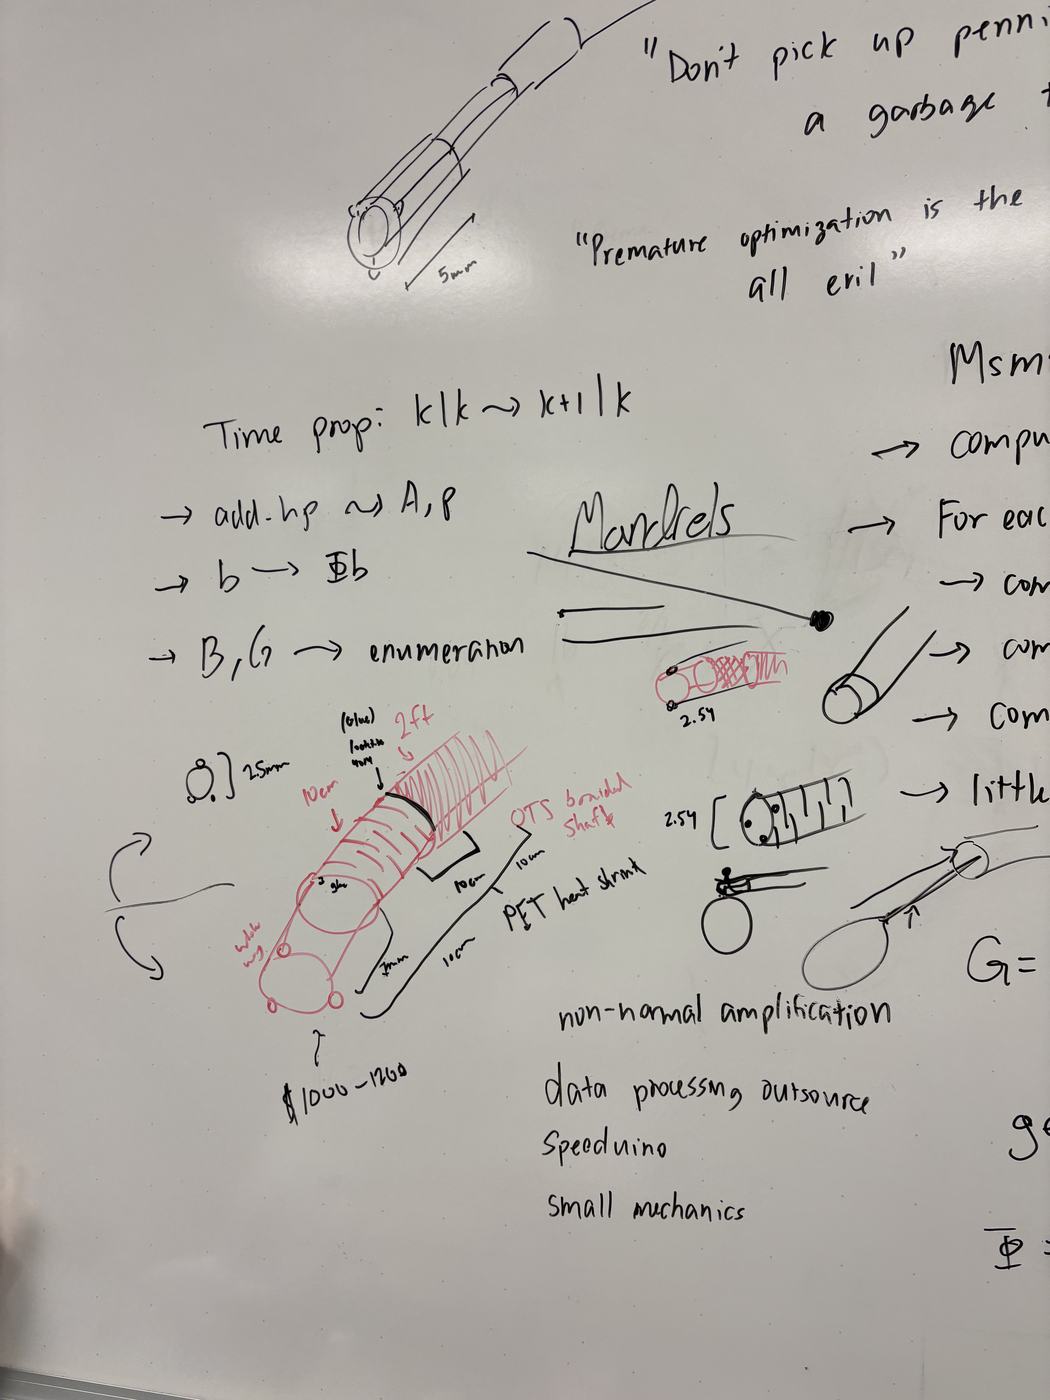 "Don't pick up penni
a garbage t
5mm
"Premature optimization is the
all evil"
Time prop: k|k ⤳ k+1|k
→ add-hp ⤳ A, p
→ b → Φb
→ B, G → enumeration
Mandrels
2.54
Msm
→ compu
→ For eac
→ com
→ com
→ com
→ little
2.5mm
(Glue)
2ft
10cm
OTS braided
shaft
glue
10cm
10cm
PET heat shrink
7mm
10cm
$1000-1200
2.54
G=
non-normal amplification
data processing outsource
Speeduino
small mechanics
ge
Φ =